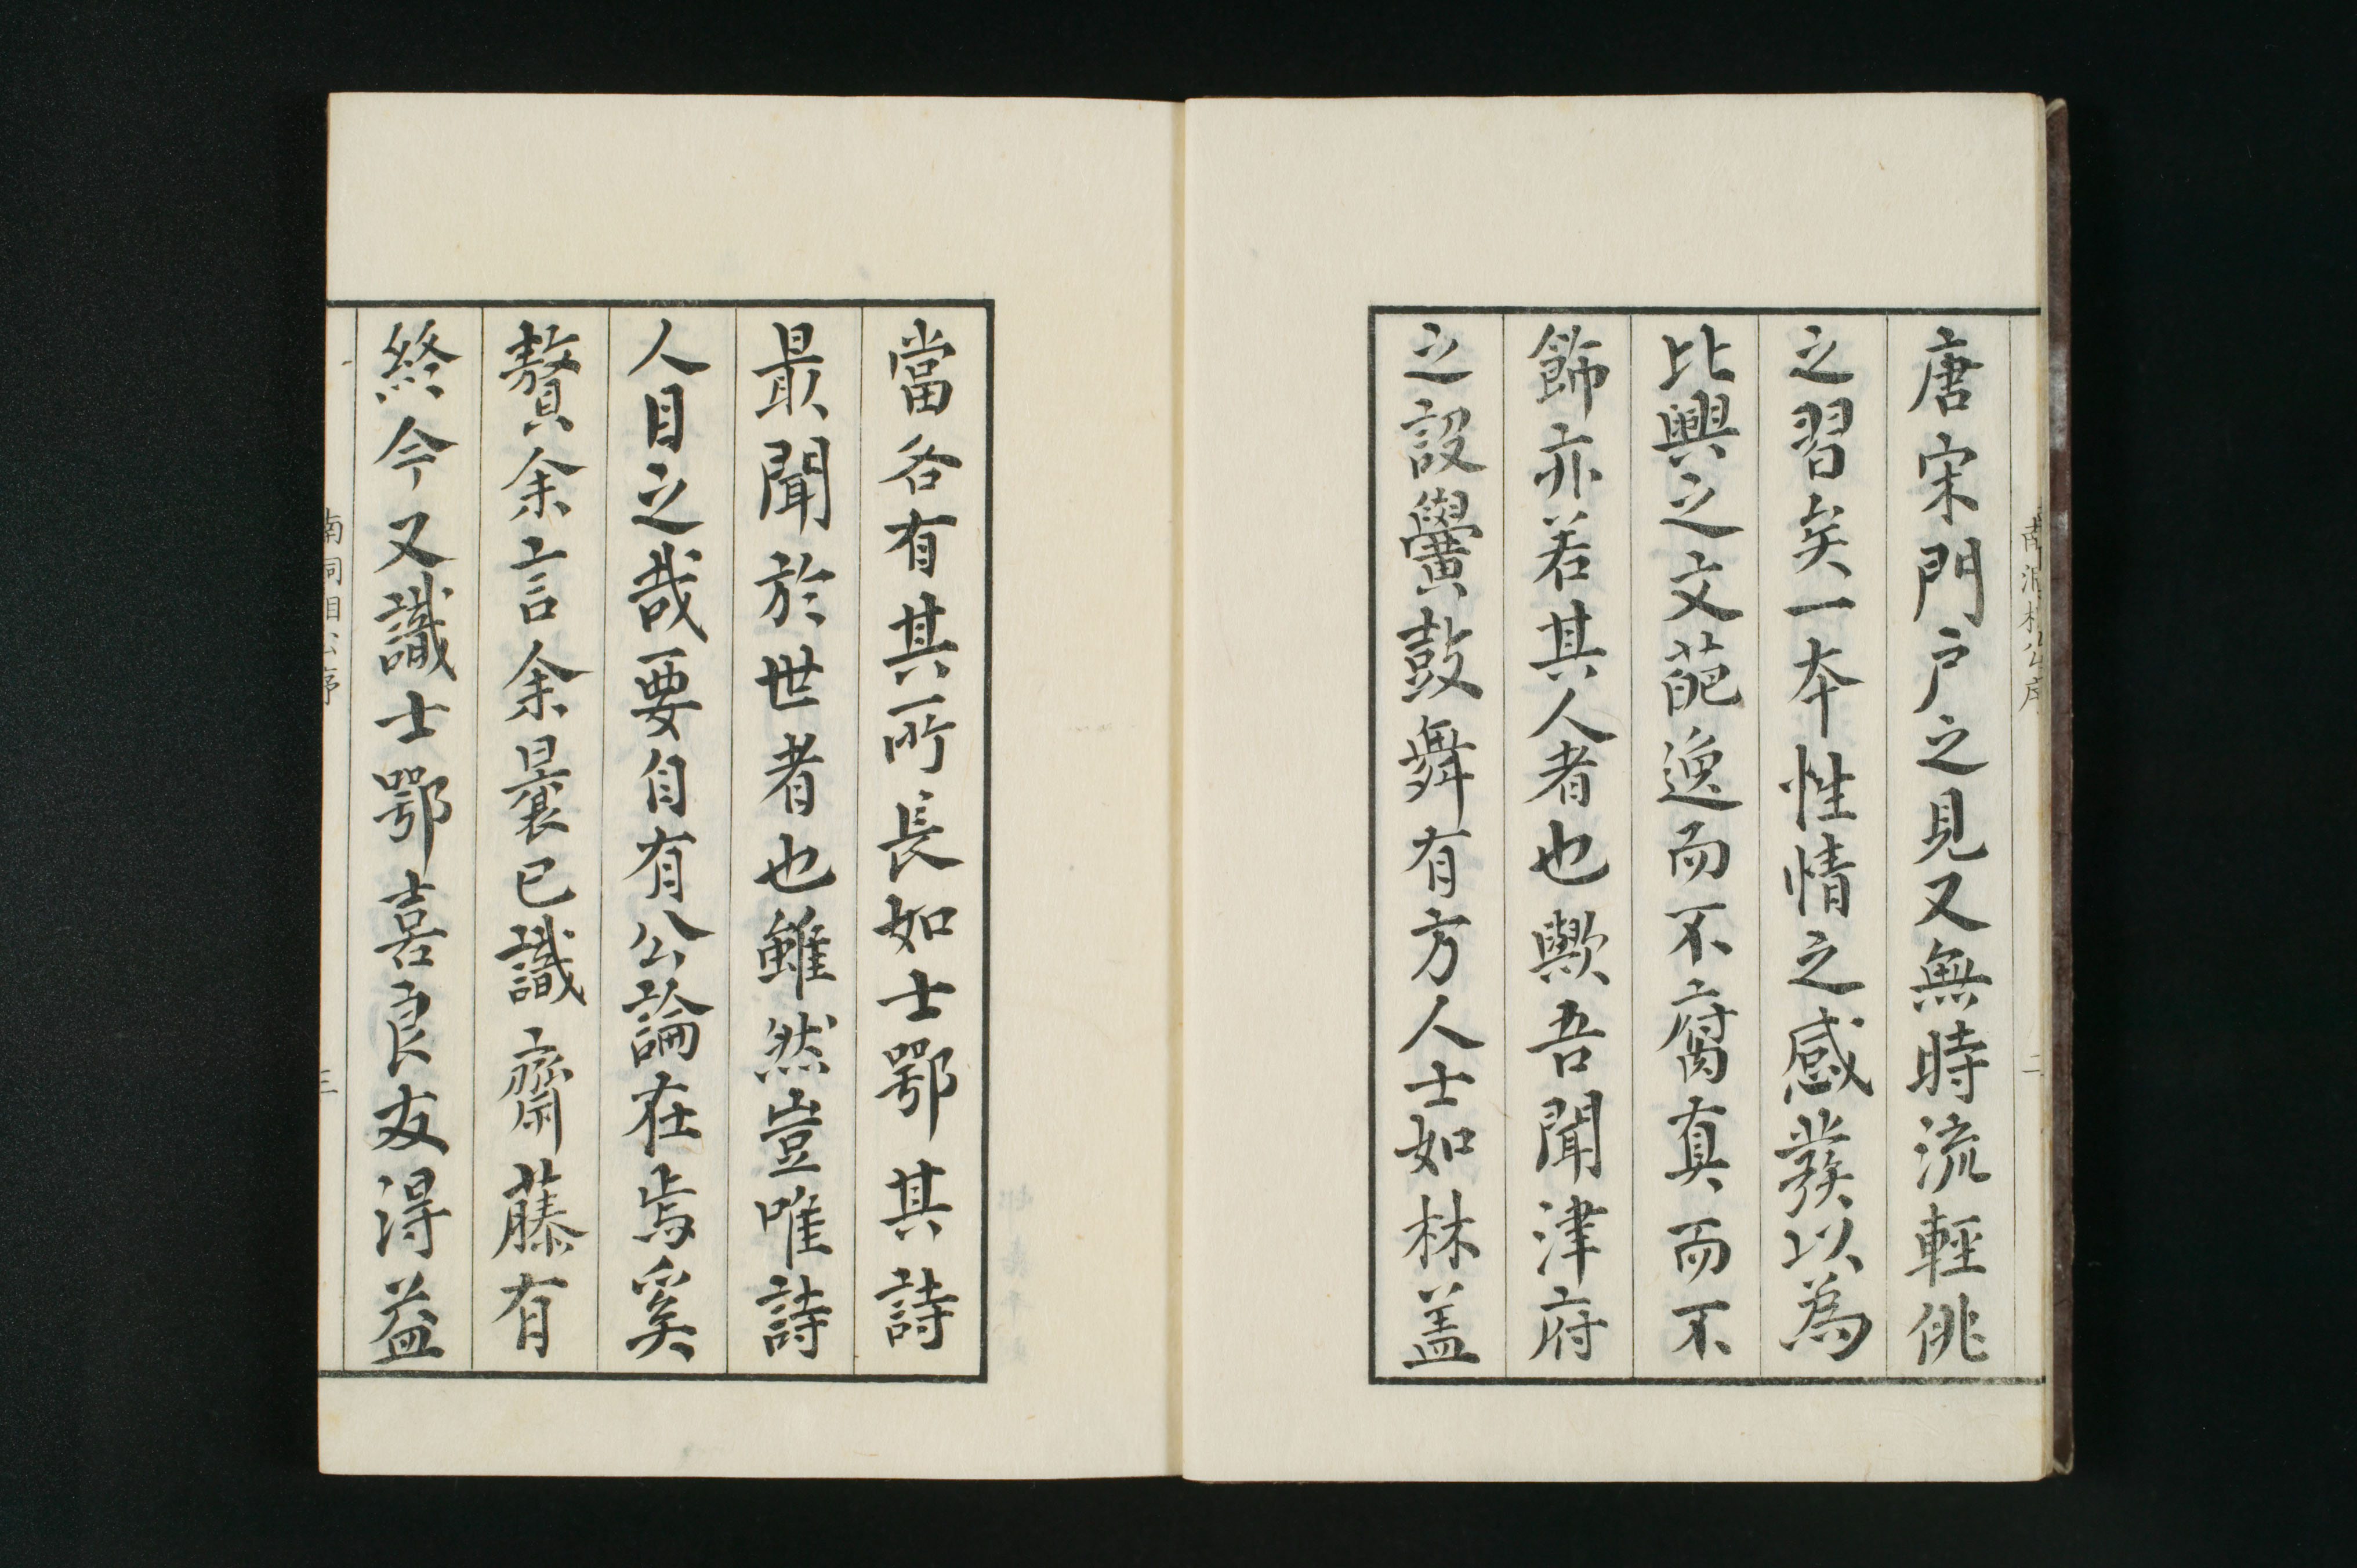 唐宋門戸之見又無時流輕佻
之習矣一本性情之感發以為
比興之文葩逸而不腐真而不
飾亦若其人者也歟吾聞津府
之設黌鼓舞有方人士如林蓋
當各有其所長如士鄂其詩
最聞於世者也雖然豈唯詩
人目之哉要自有公論在焉奚
贅余言余曩已識齋藤有
終今又識士鄂喜良友得益
南洞相公序
三